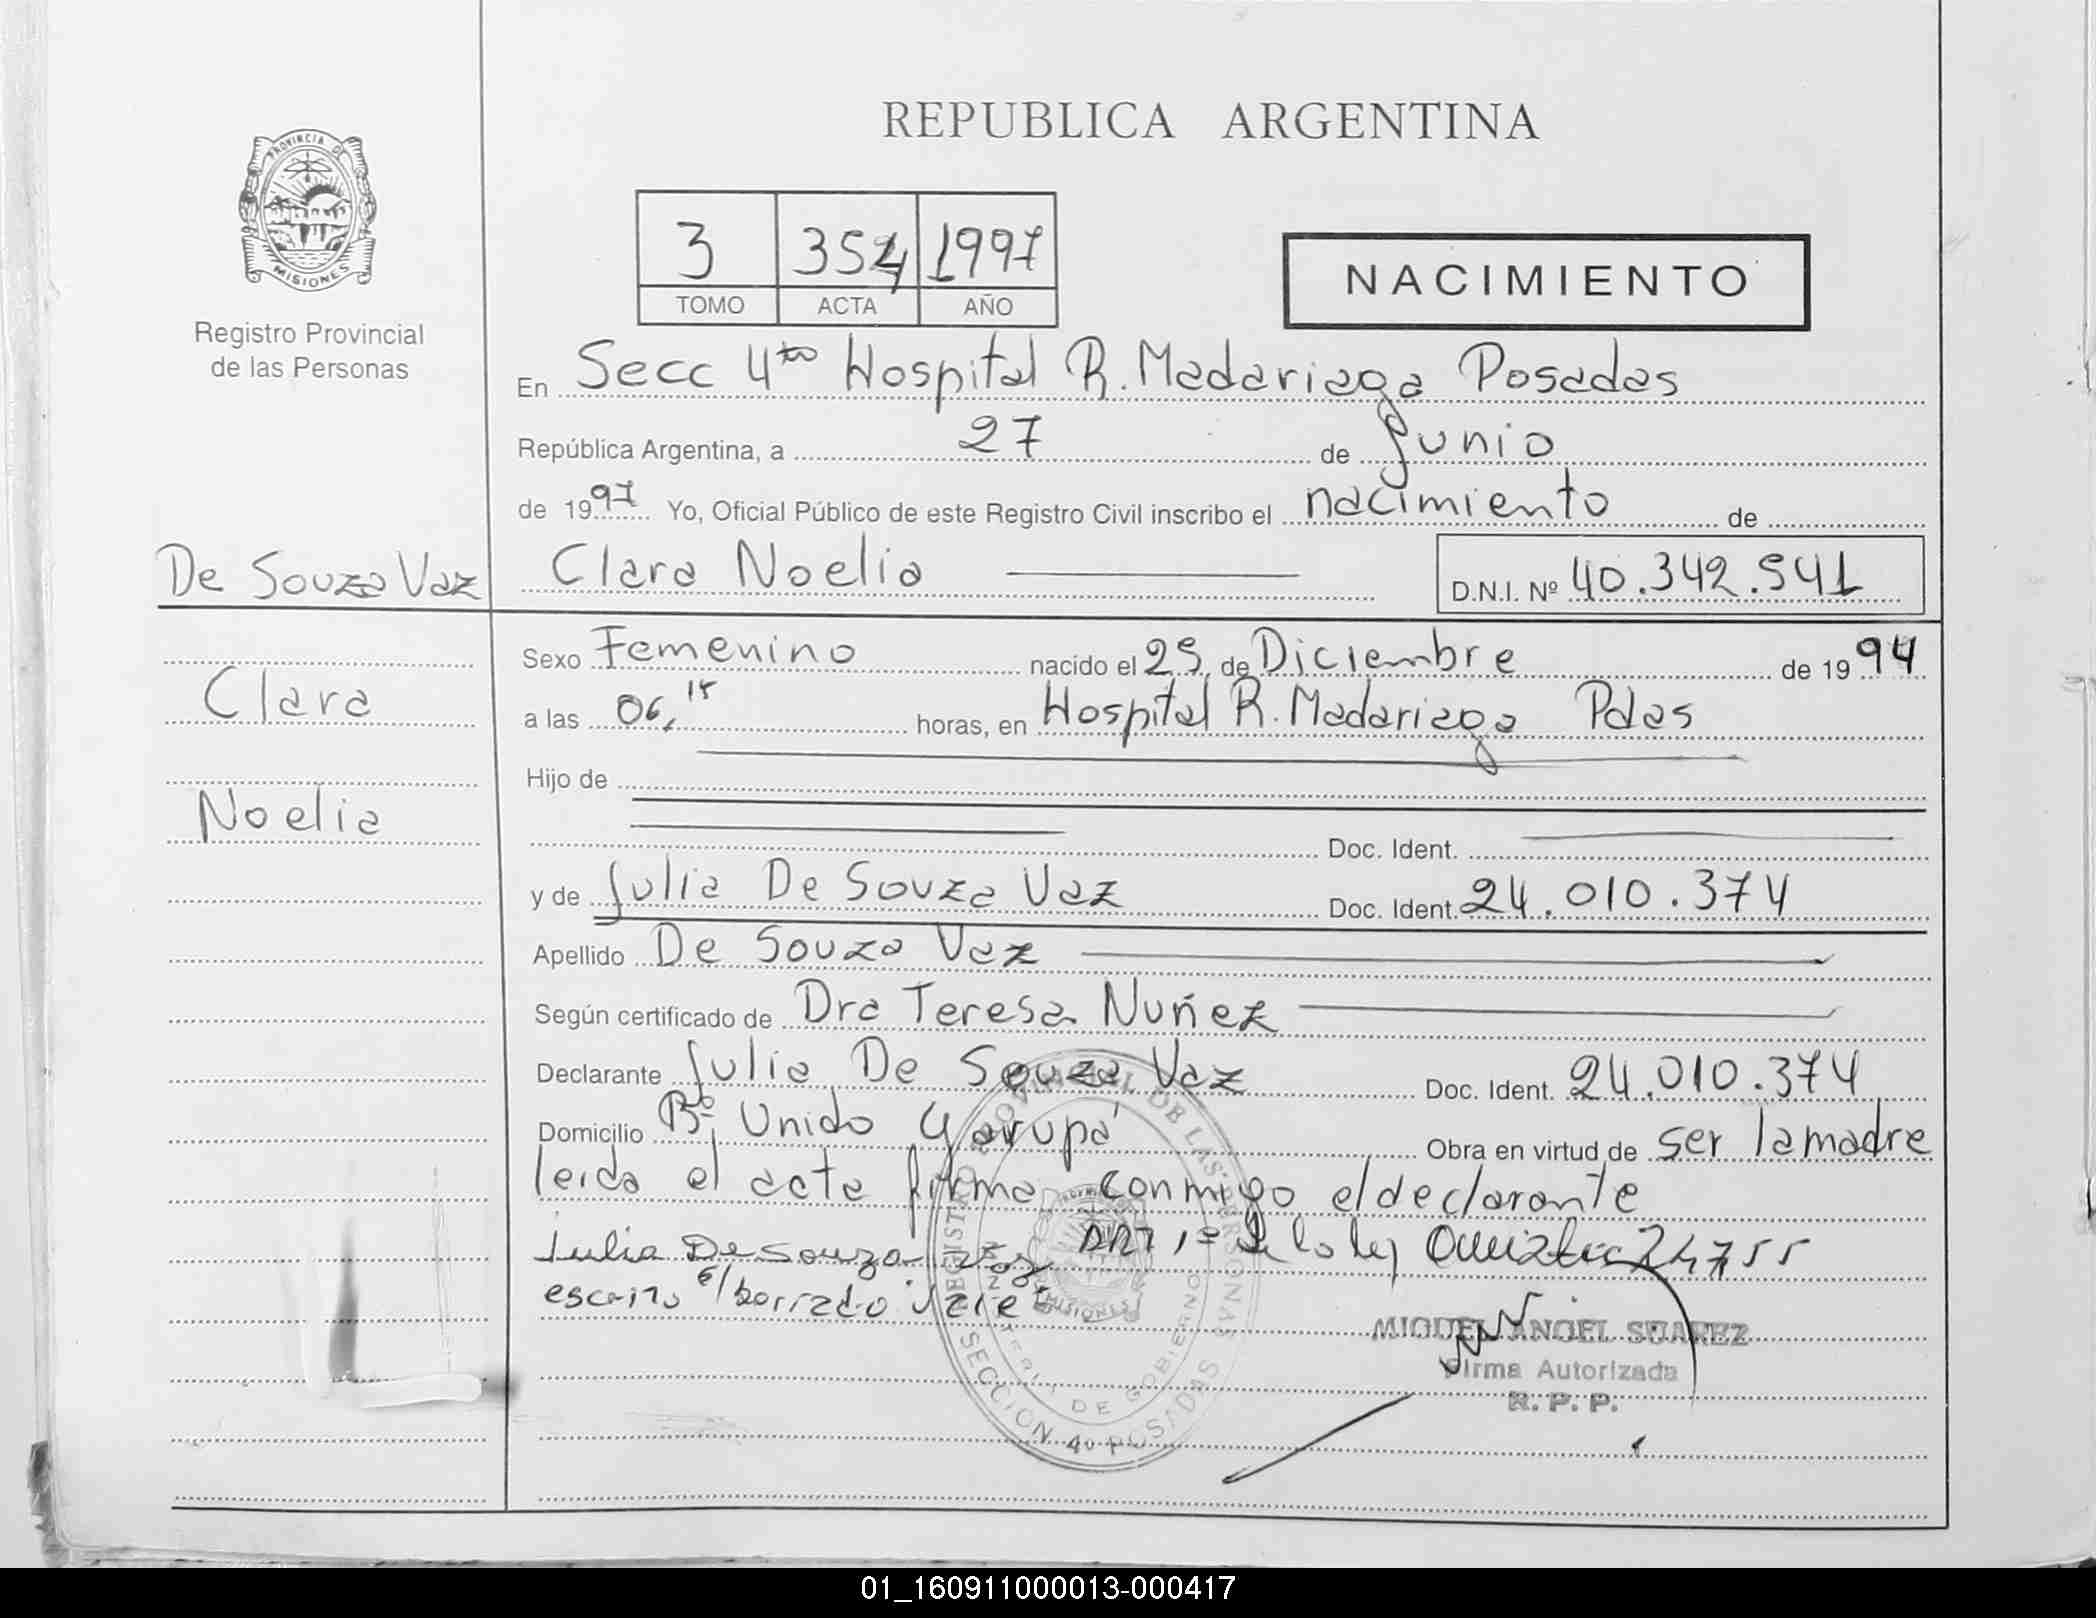 REPUBLICA ARGENTINA
PROVINCIA DE
MISIONES
Registro Provincial
de las Personas
3 354 1997
TOMO ACTA AÑO
NACIMIENTO
En Secc 4to Hospital R. Madariaga Posadas
República Argentina, a 27 de Junio
de 1997 Yo, Oficial Público de este Registro Civil inscribo el nacimiento de
De Souza Vaz Clara Noelia D.N.I. Nº 40.342.541
Sexo Femenino nacido el 25 de Diciembre de 1994
Clara
a las 06,15 horas, en Hospital R. Madariaga Pdas
Hijo de
Noelia
Doc. Ident.
y de Julia De Souza Vaz Doc. Ident. 24.010.374
Apellido De Souza Vaz
Según certificado de Dra Teresa Nuñez
Declarante Julia De Souza Vaz Doc. Ident. 24.010.374
Domicilio Bº Unido Garupá Obra en virtud de ser la madre
leida el acta firma conmigo el declarante
Julia De Souza Vaz ART 1º de la ley 24755
escrito e/ borrado vale
REGISTRO PROVINCIAL DE LAS PERSONAS
DE GOBIERNO
MISIONES
SECCION 4º POSADAS
MIGUEL ANGEL SUAREZ
Firma Autorizada
R. P. P.
01_160911000013-000417